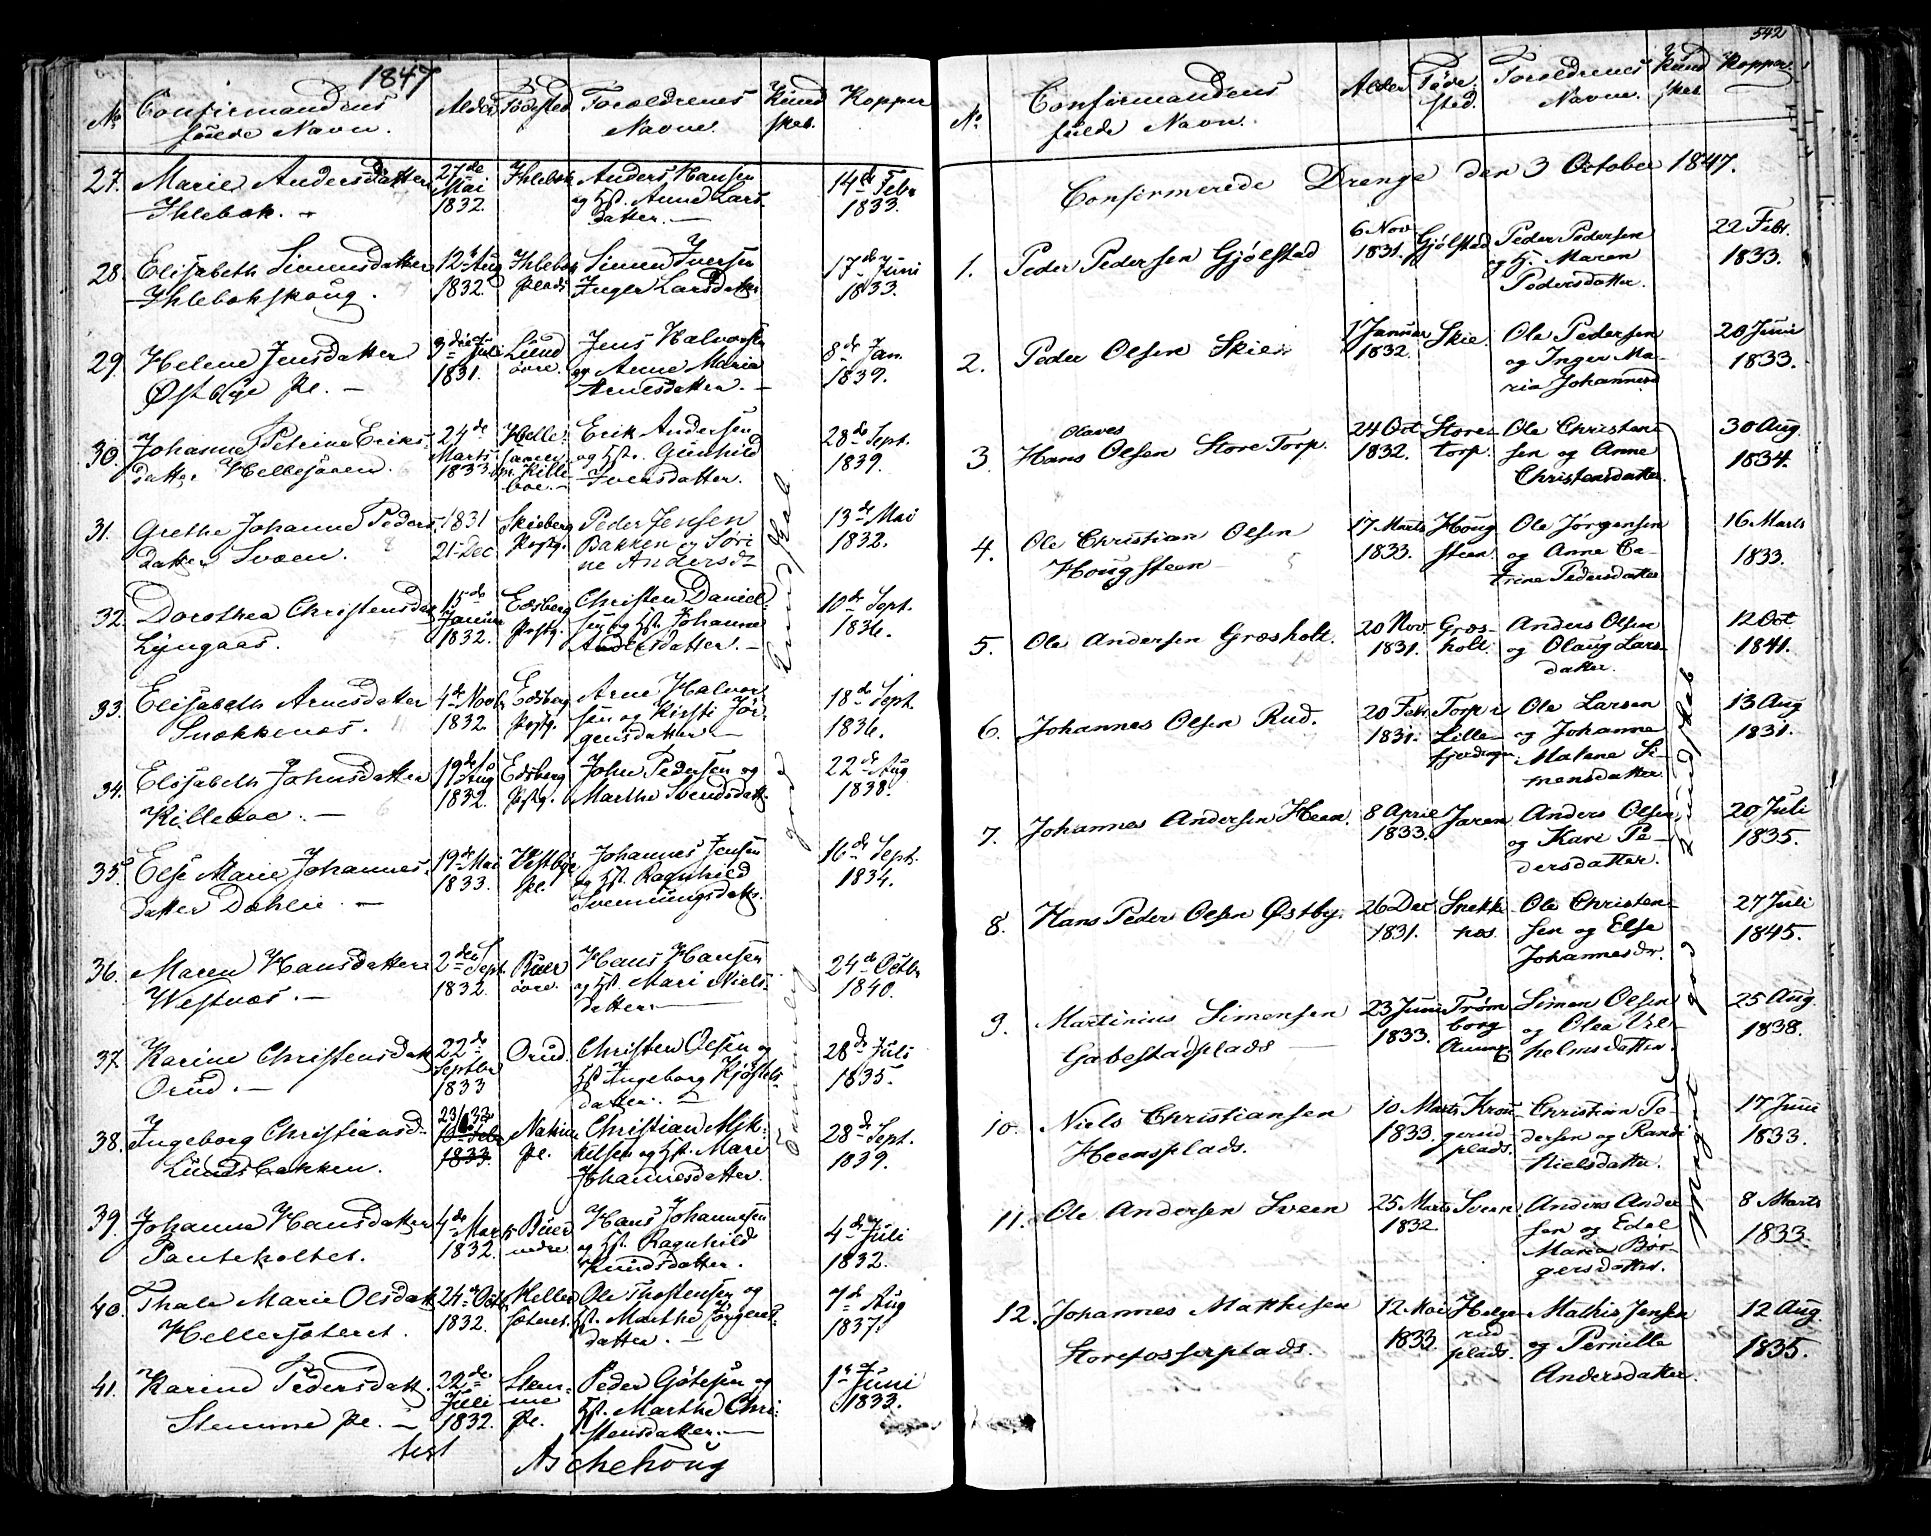 1847
No Confirmandens fulde Navn. Alder Fødested Forældrenes Navne. Kundskab. Kopper
27. Marie Andersdatter Ihlebæk. 27de Mai 1832. Ihlebæk Anders Hansen og Hst. Anne Larsdatter. 14de Febr 1833.
28. Elisabeth Simensdatter Ihlebekskoug. 12te Aug 1832. Ihlebæk Plads Simen Iversen Inger Larsdatter 17de Juni 1833.
29. Helene Jensdatter Østbye Pl. 3die Juli 1831. Lund øvre. Jens Halvorsen og Anne Maria Arnesdatter. 8de Jan. 1839.
30. Johanne Petrine Eriksdatter Hellesøeen. 24de Marts 1833 Erik Andersen og Hst. Gunhild Iversdatter. 28de Sept. 1839.
31. Grethe Johanne Pedersdatter Sveen. 1831 21 Dec Skieberg Præstg. Peder Jensen Bakken og Sørine Andersd. 13de Mai 1832.
32. Dorothea Christensdatt Lyngaas. 15de Januar 1832. Edsberg Præstg. Christen Danielsen og Hst. Johanne Andersdatter. 10de Sept. 1836.
33. Elisabeth Arnesdatter Snekkenæs. 4de Novbr 1832. Edsberg Præstg. Arne Halvorsen og Kirsti Jørgensdatter. 18de Sept. 1836.
34. Elisabeth Johnsdatter Killeboe. 19de Aug 1832. Edsberg Præstg. John Pedersen og Marthe Svendsdatt. 22de Aug 1838.
35. Else Marie Johannesdatter Dæhlie. 19de Mai 1833. Vestbye Pl. Johannes Jensen og Hst. Ragnhild Svenningsdatt. 16de Sept. 1834.
36. Maren Hansdatter Westnæs. 2den Sept. 1832. Buer øvre. Hans Hansen og Hst. Mari Nielsdatter. 24de Octbr 1840.
37. Karine Christensdatt Orud. 22de Septbr 1833 Orud. Christen Olsen og Hst Ingeborg Kjøstelsdatter. 28de Juli 1835.
38. Ingeborg Christiansd. Lundsbakken. 1833. Pl. Christian Mikkelsen og Hst. Mari Johannesdatter. 28de Sept. 1839.
39. Johanne Hansdatter Panteholtet. 4de Marts 1832. Buer nedre Hans Johannesen og Hst. Ragnhild Knudsdatter. 4de Juli 1832.
40. Thale Marie Olsdatt Hellersæteret. 24de Octbr 1832. Hellersæteret. Ole Thostensen og Hst. Marthe Jørgensdatter. 7de Aug 1837.
41. Karine Pedersdatt. Stemme Pl. 22de Juli 1832. Stemme Pl. Peder Gøtesen og Hst. Marthe Christensdatter. 1ste Juni 1833.
god Kundskab
test
Aschehoug
542
No. Confirmandens fulde Navn. Alder Fødested. Forældrenes Navne. Kundskab. Kopper.
Confirmerede Drenge den 3 October 1847.
1. Peder Pedersen Gjølstad 6 Nov 1831. Gjølstad Peder Pedersen og H. Maren Pedersdatter. 22 Febr. 1833.
2. Peder Olsen Skie 1 Januar 1832. Skie. Ole Pedersen og Inger Maria Johannesd 20 Juni 1833.
3. Hans Olaves Olsen Store Torp. 24 Oct 1832. Storetorp. Ole Christensen og Anne Christensdatter. 30 Aug. 1834.
4. Ole Christian Olsen Hougsteen 17 Marts 1833. Hougsteen Ole Jørgensen og Anne Catrine Pedersdatter 16 Marts 1833.
5. Ole Andersen Græsholt. 20 Nov. 1831. Græsholt. Anders Olsen og Olaug Larsdatter. 12 Oct. 1841.
6. Johannes Olsen Rud. 20 Febr 1831. Torp i Lille Ole Larsen og Johanne Malene Simensdatter. 13 Aug 1831.
7. Johannes Andersen Heen. 8 April 1833. Jaren Anders Olsen og Kari Pedersdatter. 20 Juli 1835.
8. Hans Peder Olsen Østby. 26 Dec 1831. Snekknæs. Ole Christensen og Else Johannesdr. 27 Juli 1845.
9. Martinius Simensen Gabestadplads 23 Juni 1833. Trømborg Annex Simen Olsen og Olea Vilhelmsdatter. 25 Aug. 1838.
10. Niels Christiansen Heensplads. 10 Marts 1833. plads. Christian Pedersen og Randi Nielsdatter. 17 Juni 1833.
11. Ole Andersen Sveen 25 Marts 1832. Sveen. Anders Andersen og Edel Maria Børgersdatter. 8 Marts 1833.
12. Johannes Mathisen Storefosserplads. 12 Mai 1833. Helgerud plads. Mathis Jensen og Pernille Andersdatter. 12 Aug. 1835.
Meget god Kundskab